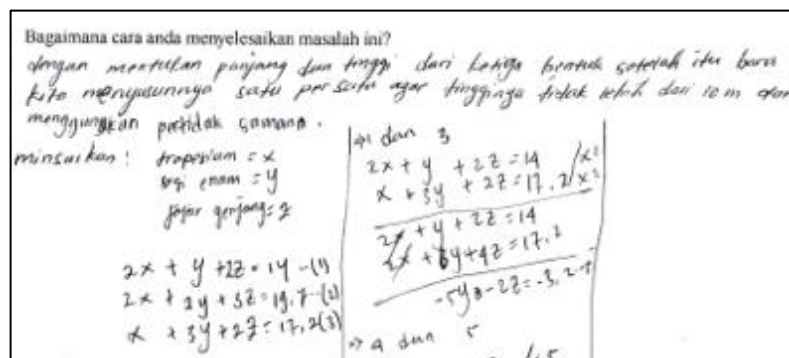 Bagaimana cara anda menyelesaikan masalah ini?
dengan mentukan panjang dan tinggi dari ketiga bentuk setelah itu baru
kita menyusunnya satu per satu agar tingginya tidak lebih dari 10 m dan
menggunakan pertidak samaan.
minsalkan : trapesium = x
segi enam = y
jajar genjang = z
2x + y + 2z = 14 - (1)
2x + 2y + 3z = 19,7 - (2)
x + 3y + 2z = 17,2 (3)
1 dan 3
2x + y + 2z = 14
x + 3y + 2z = 17,2
2x + y + 2z = 14
2x + 6y + 4z = 17,2
-5y - 2z = -3,2
4 dan 5